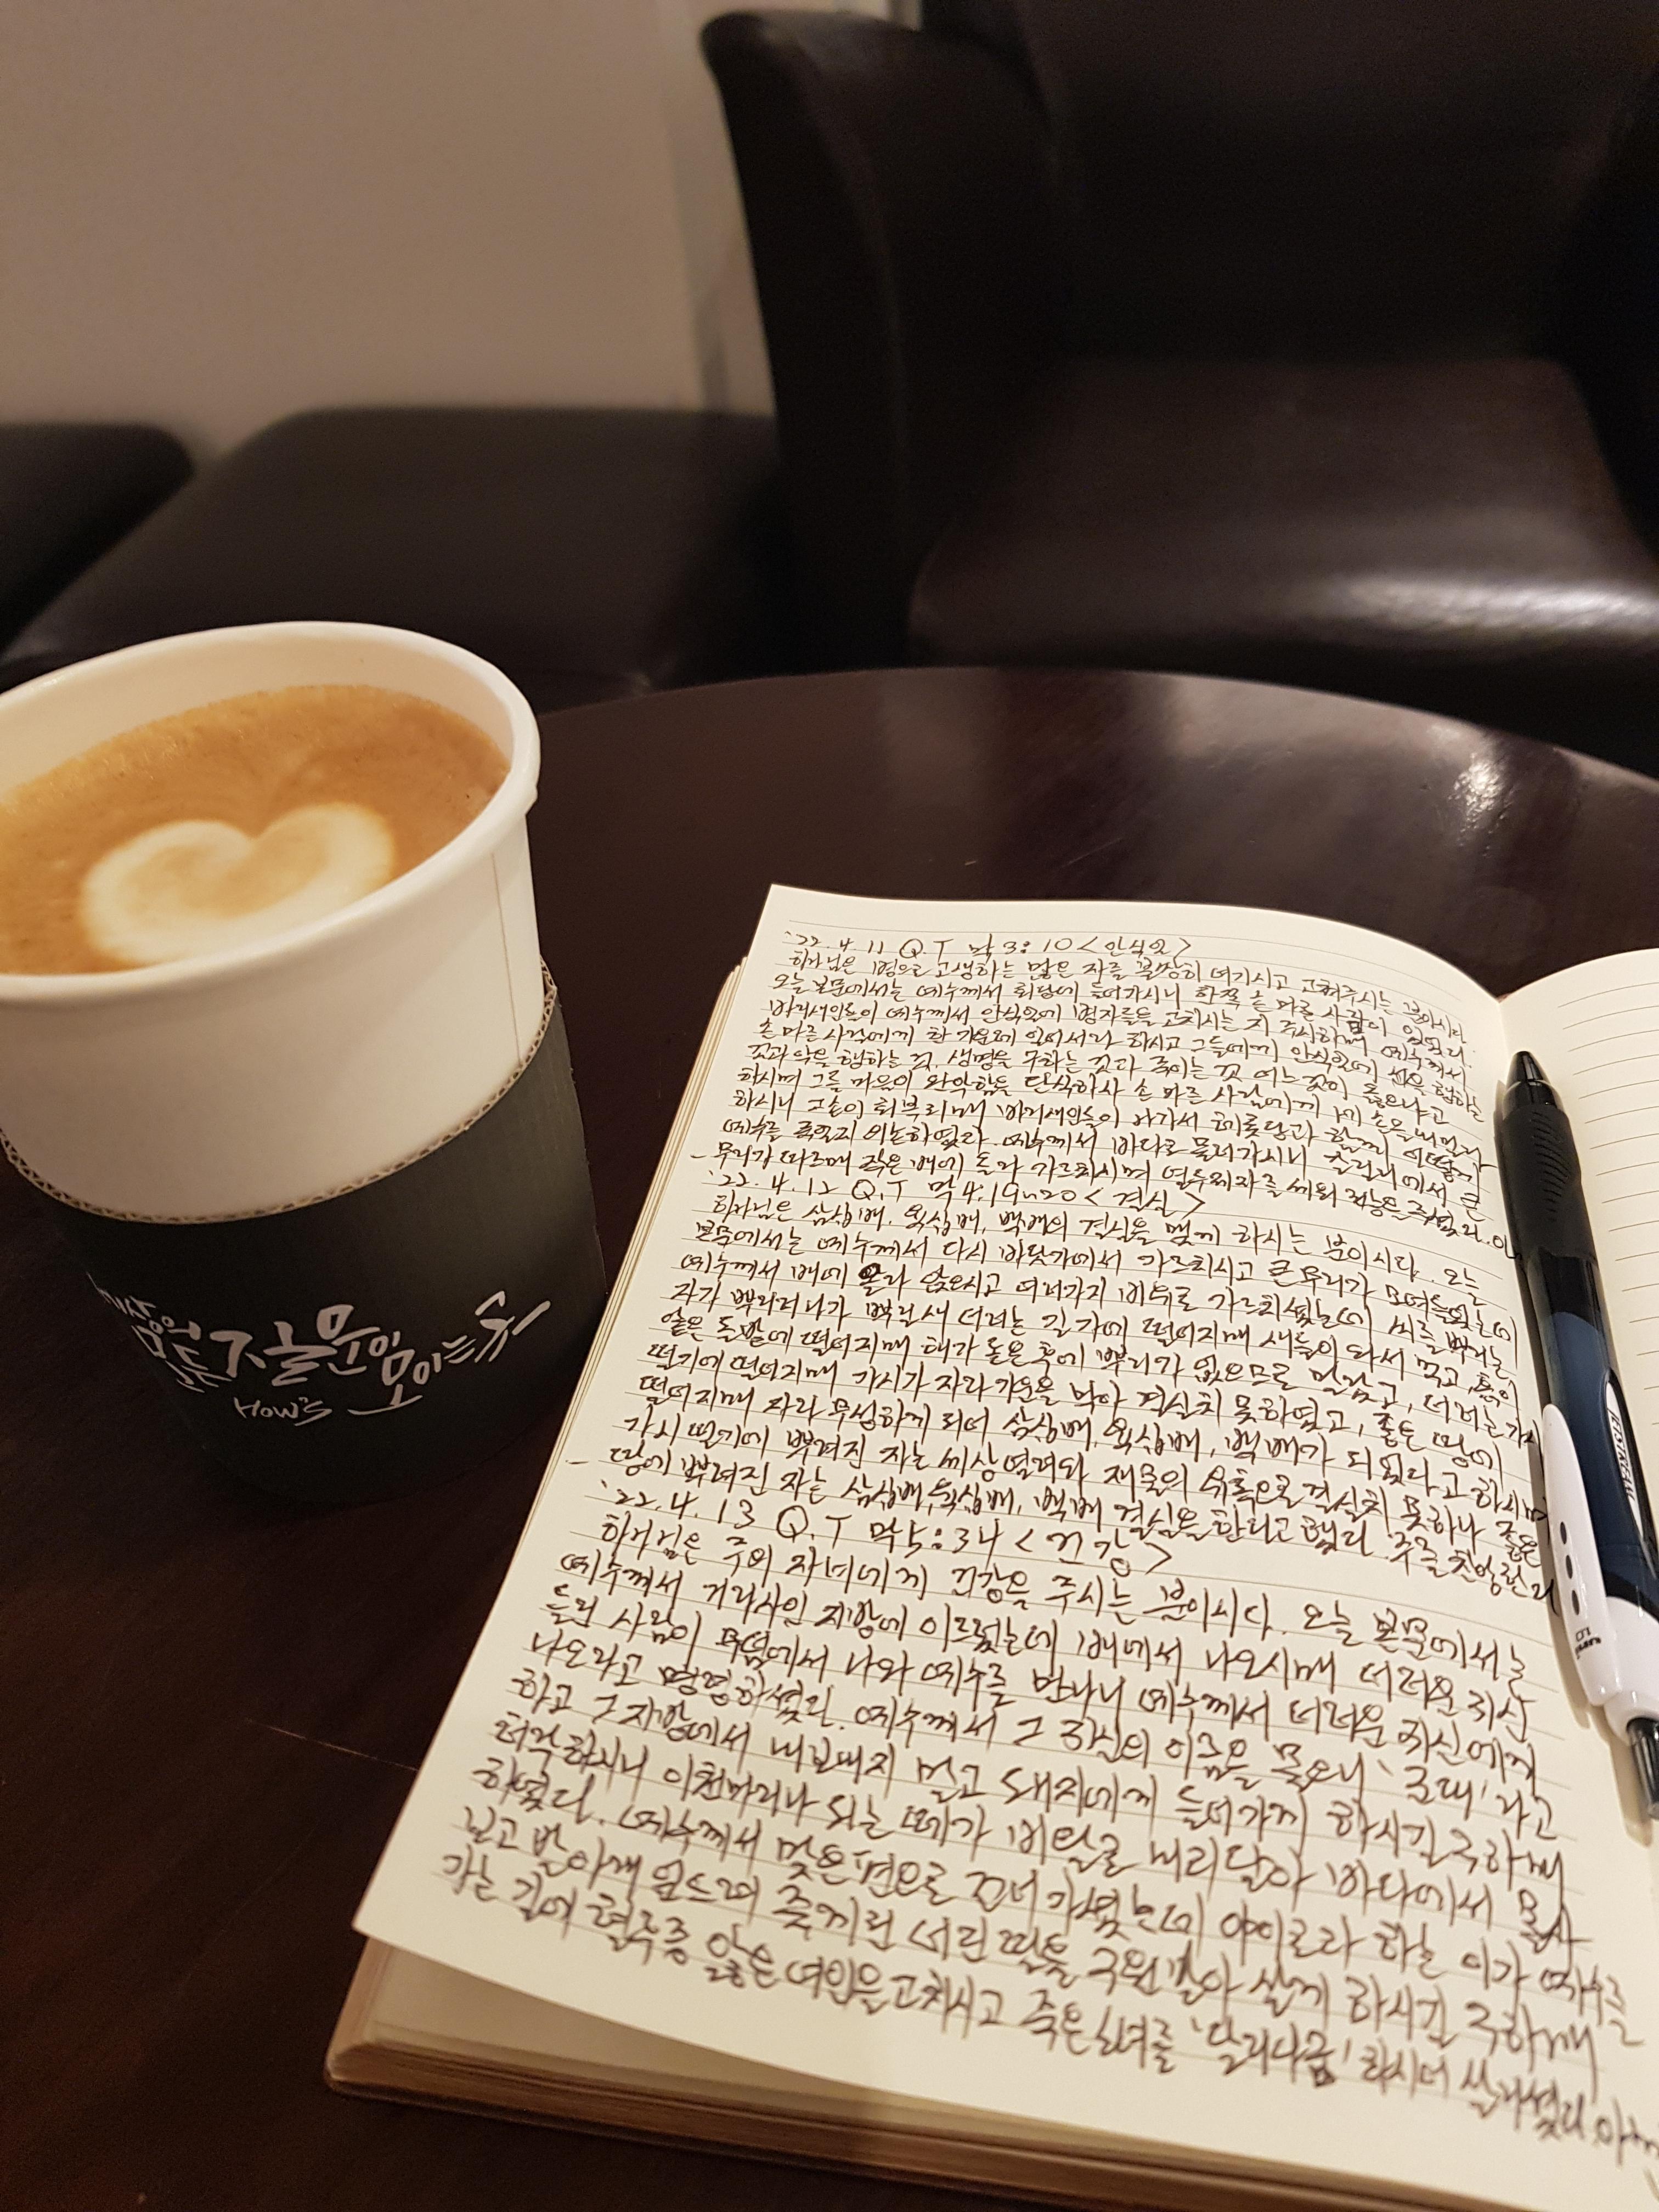 세상의
모든 젊음이
모이는 곳
HOW'S
'22.4.11 Q.T 막3:10 <안식일>
하나님은 병으로 고생하는 많은 자를 불쌍히 여기시고 고쳐주시는 분이시다.
오늘 본문에서는 예수께서 회당에 들어가시니 한쪽 손 마른 사람이 있었다.
바리새인들이 예수께서 안식일에 병자를 고치시는 지 주시하매 예수께서
손 마른 사람에게 한 가운데 일어서라 하시고 그들에게 안식일에 선을 행하는
것과 악을 행하는 것, 생명을 구하는 것과 죽이는 것 어느것이 옳으냐고
하시며 그들 마음이 완악함을 탄식하사 손 마른 사람에게 네 손을 내밀라
하시니 그 손이 회복되매 바리새인들이 나가서 헤롯당과 함께 어떻게
예수를 죽일지 의논하였다. 예수께서 바다로 물러가시니 갈릴리에서 큰
무리가 따르매 작은 배에 올라 가르치시며 열두제자를 세워 권능을 주셨다.
'22.4.12 Q.T 막4:19~20 <결실>
하나님은 삼십배, 육십배, 백배의 결실을 맺게 하시는 분이시다. 오늘
본문에서는 예수께서 다시 바닷가에서 가르치시고 큰 무리가 모여들었는데
예수께서 배에 올라 앉으시고 여러가지 비유로 가르치셨는데 씨를 뿌리는
자가 뿌리러 나가 뿌릴새 더러는 길 가에 떨어지매 새들이 와서 먹고, 흙이
얕은 돌밭에 떨어지매 해가 돋은 후에 뿌리가 없으므로 말랐고, 더러는 가시
떨기에 떨어지매 가시가 자라 기운을 막아 결실치 못하였고, 좋은 땅에
떨어지매 자라 무성하게 되어 삼십배, 육십배, 백배가 되었다고 하시며
가시 떨기에 뿌려진 자는 세상 염려와 재물의 유혹으로 결실치 못하나 좋은
땅에 뿌려진 자는 삼십배, 육십배, 백배 결실을 한다고 했다. 주를 찬양한다
'22.4.13 Q.T 막5:34 <건강>
하나님은 주의 자녀에게 건강을 주시는 분이시다. 오늘 본문에서는
예수께서 거라사인 지방에 이르렀는데 배에서 나오시매 더러운 귀신
들린 사람이 무덤에서 나와 예수를 만나니 예수께서 더러운 귀신에게
나오라고 명령하셨다. 예수께서 그 귀신의 이름을 물으니 '군대'라고
하고 그 지방에서 내보내지 말고 돼지에게 들어가게 하시길 구하매
허락하시니 이천마리나 되는 떼가 비탈로 내리달아 바다에서 몰사
하였다. 예수께서 맞은편으로 건너가셨는데 야이로라 하는 이가 예수를
보고 발 아래 엎드려 죽게된 어린 딸을 구원받아 살게 하시길 구하매
가는 길에 혈루증 앓은 여인을 고치시고 죽은 소녀를 '달리다굼' 하시며 살리셨다. 아멘
JETSTREAM